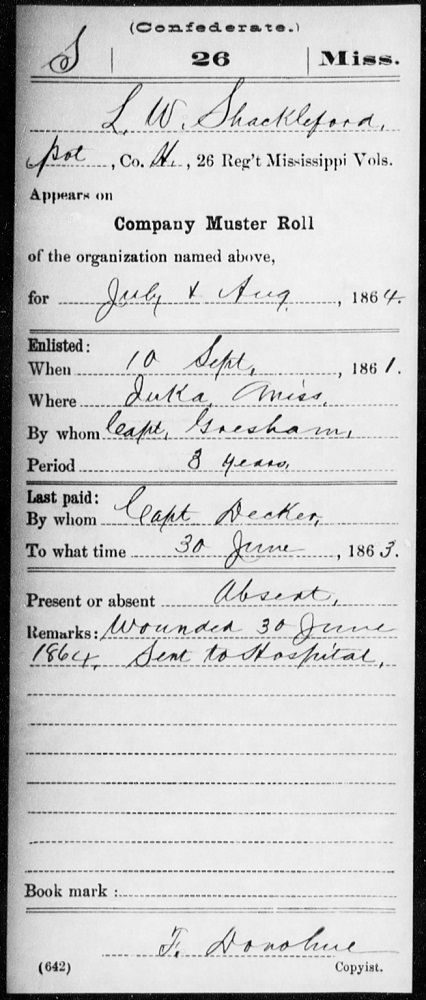 (Confederate.)
S | 26 | Miss.
L. W. Shackleford,
Pvt, Co. H., 26 Reg't Mississippi Vols.
Appears on
Company Muster Roll
of the organization named above,
for July & Aug, 1864.
Enlisted:
When 10 Sept, 1861.
Where Iuka, Miss,
By whom Capt, Gresham,
Period 3 years,
Last paid:
By whom Capt Decker,
To what time 30 June, 1863.
Present or absent Absent,
Remarks: Wounded 30 June
1864, Sent to Hospital,
Book mark :
F. Donohue
(642) Copyist.